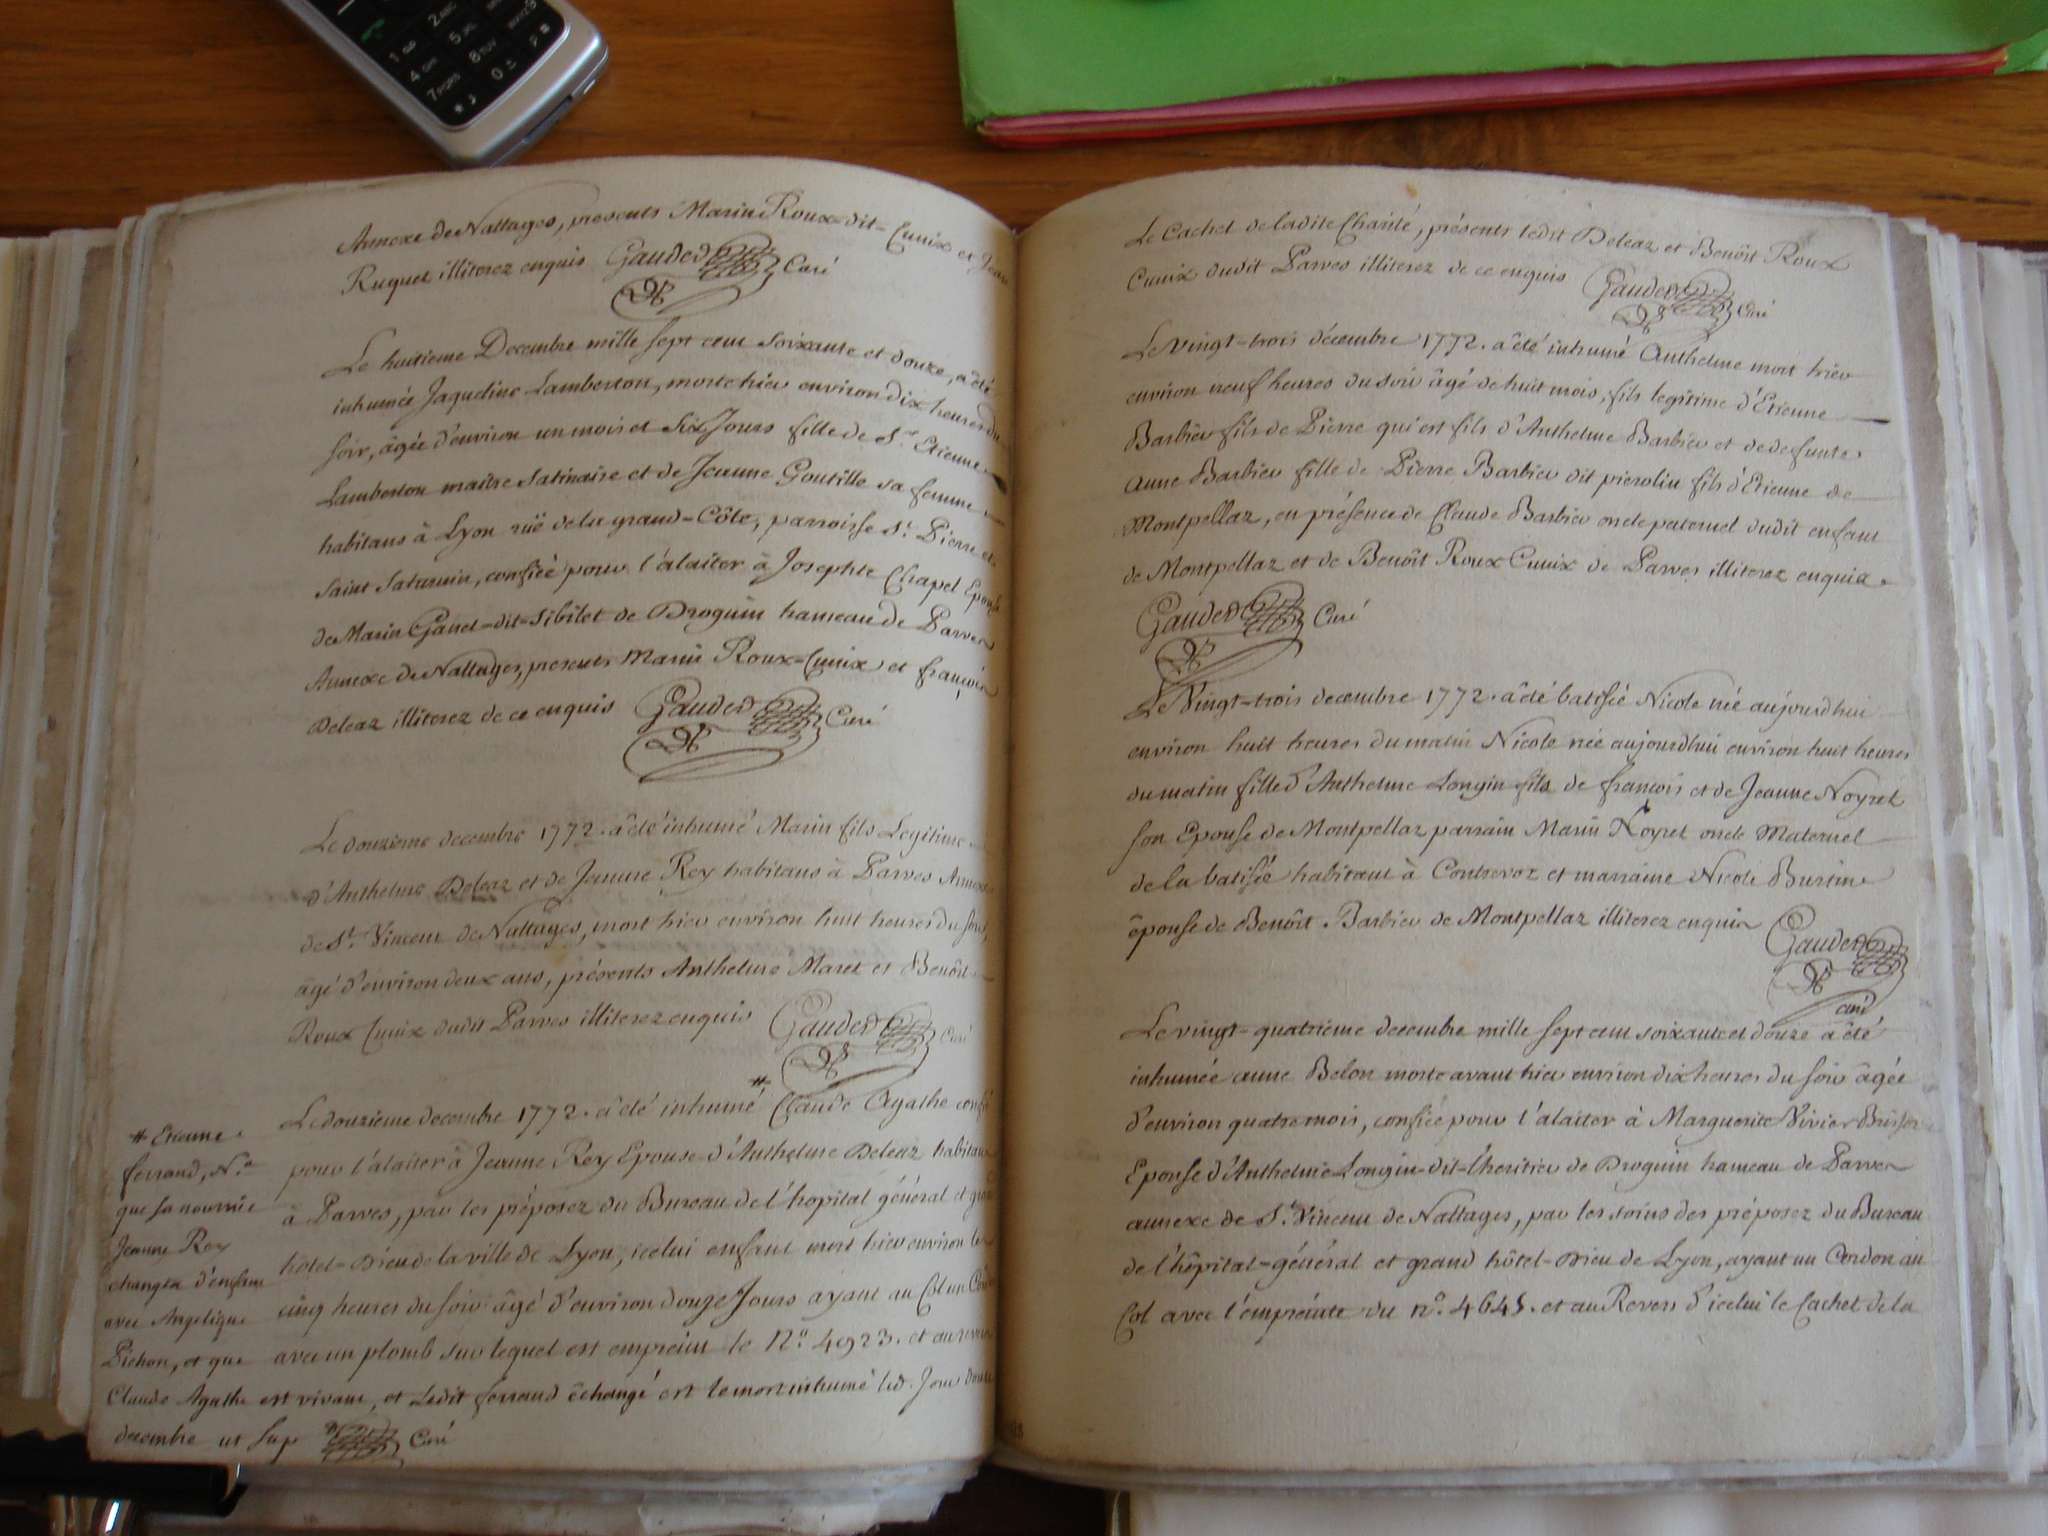 Annexe de Nattages, presents Marin Roux-dit-Cunix et Jean
Ruguet illiterez enquis Gauded Curé
Le huitieme Decembre mille sept cent soixante et douze, a été
inhumée Jaqueline Lamberton, morte hier environ dix heures du
soir, âgée d'environ un mois et six Jours fille de Sr. Etienne
Lamberton maître Satinaire et de Jeanne Goutille sa femme
habitans à Lyon ruë de la grand-Côte, parroisse St. Pierre et
Saint Saturnin, confiée pour l'alaiter à Josephte Chapel Epouse
de Marin Ganet-dit-Sibilet de Droguin hameau de Parves
Annexe de Nattages, presents Marin Roux-Cunix et françois
Deleaz illiterez de ce enquis Gauded Curé
Le douzieme decembre 1772. a été inhumé Marin fils Legitime
d'Anthelme Deleaz et de Jeanne Rey habitans à Parves Annexe
de St. Vincent de Nattages, mort hier environ huit heures du soir,
âgé d'environ deux ans, présents Anthelme Maret et Benoît
Roux Cunix dudit Parves illiterez enquis Gauded Curé
Le douzieme decembre 1772. a été inhumé # Claude Agathe confié
pour l'alaiter à Jeanne Rey Epouse d'Anthelme Deleaz habitans
à Parves, par les préposez du Bureau de l'hopital général et grand
hôtel-Dieu de la ville de Lyon, icelui enfant mort hier environ les
cinq heures du soir âgé d'environ douze Jours ayant au Col un Cordon
avec un plomb sur lequel est empreint le No. 4923. et au revers
# Etienne
ferrand, Na.
que sa nourrice
Jeanne Rey
changea d'enfant
avec Angelique
Pichon, et que
Claude Agathe est vivant, et Ledit ferrand échangé est le mort inhumé led. Jour douze
decembre ut sup Curé
Le Cachet de ladite Charité, présents ledit Deleaz et Benoît Roux
Cunix dudit Parves illiterez de ce enquis Gauded Curé
Le vingt-trois décembre 1772. a été inhumé Anthelme mort hier
environ neuf heures du soir âgé de huit mois, fils legitime d'Etienne
Barbier fils de Pierre qui est fils d'Anthelme Barbier et de defunte
anne Barbier fille de Pierre Barbier dit pierolin fils d'Etienne de
Montpellaz, en présence de Claude Barbier oncle paternel dudit enfant
de Montpellaz et de Benoît Roux Cunix de Parves illiterez enquis
Gauded Curé
Le Vingt-trois decembre 1772. a été batisée Nicole née aujourdhui
environ huit heures du matin Nicole née aujourdhui environ huit heures
du matin fille d'Anthelme Longin fils de françois et de Jeanne Noyret
son Epouse de Montpellaz parrain Marin Noyret oncle Maternel
de la batisée habitant à Contrevoz et marraine Nicole Burtin
épouse de Benoît Barbier de Montpellaz illiterez enquis Gauded
curé
Le vingt-quatrieme decembre mille sept cent soixante et douze a été
inhumée anne Belon morte avant hier environ dix heures du soir âgée
d'environ quatre mois, confiée pour l'alaiter à Marguerite Vivier
Epouse d'Anthelme Longin-dit-l'heritier de Droguin hameau de Parves
annexe de St. Vincent de Nattages, par les soins des préposez du Bureau
de l'hôpital-général et grand hôtel-Dieu de Lyon, ayant un Cordon au
Col avec l'empreinte du no. 4645. et au Revers d'icelui le Cachet de la